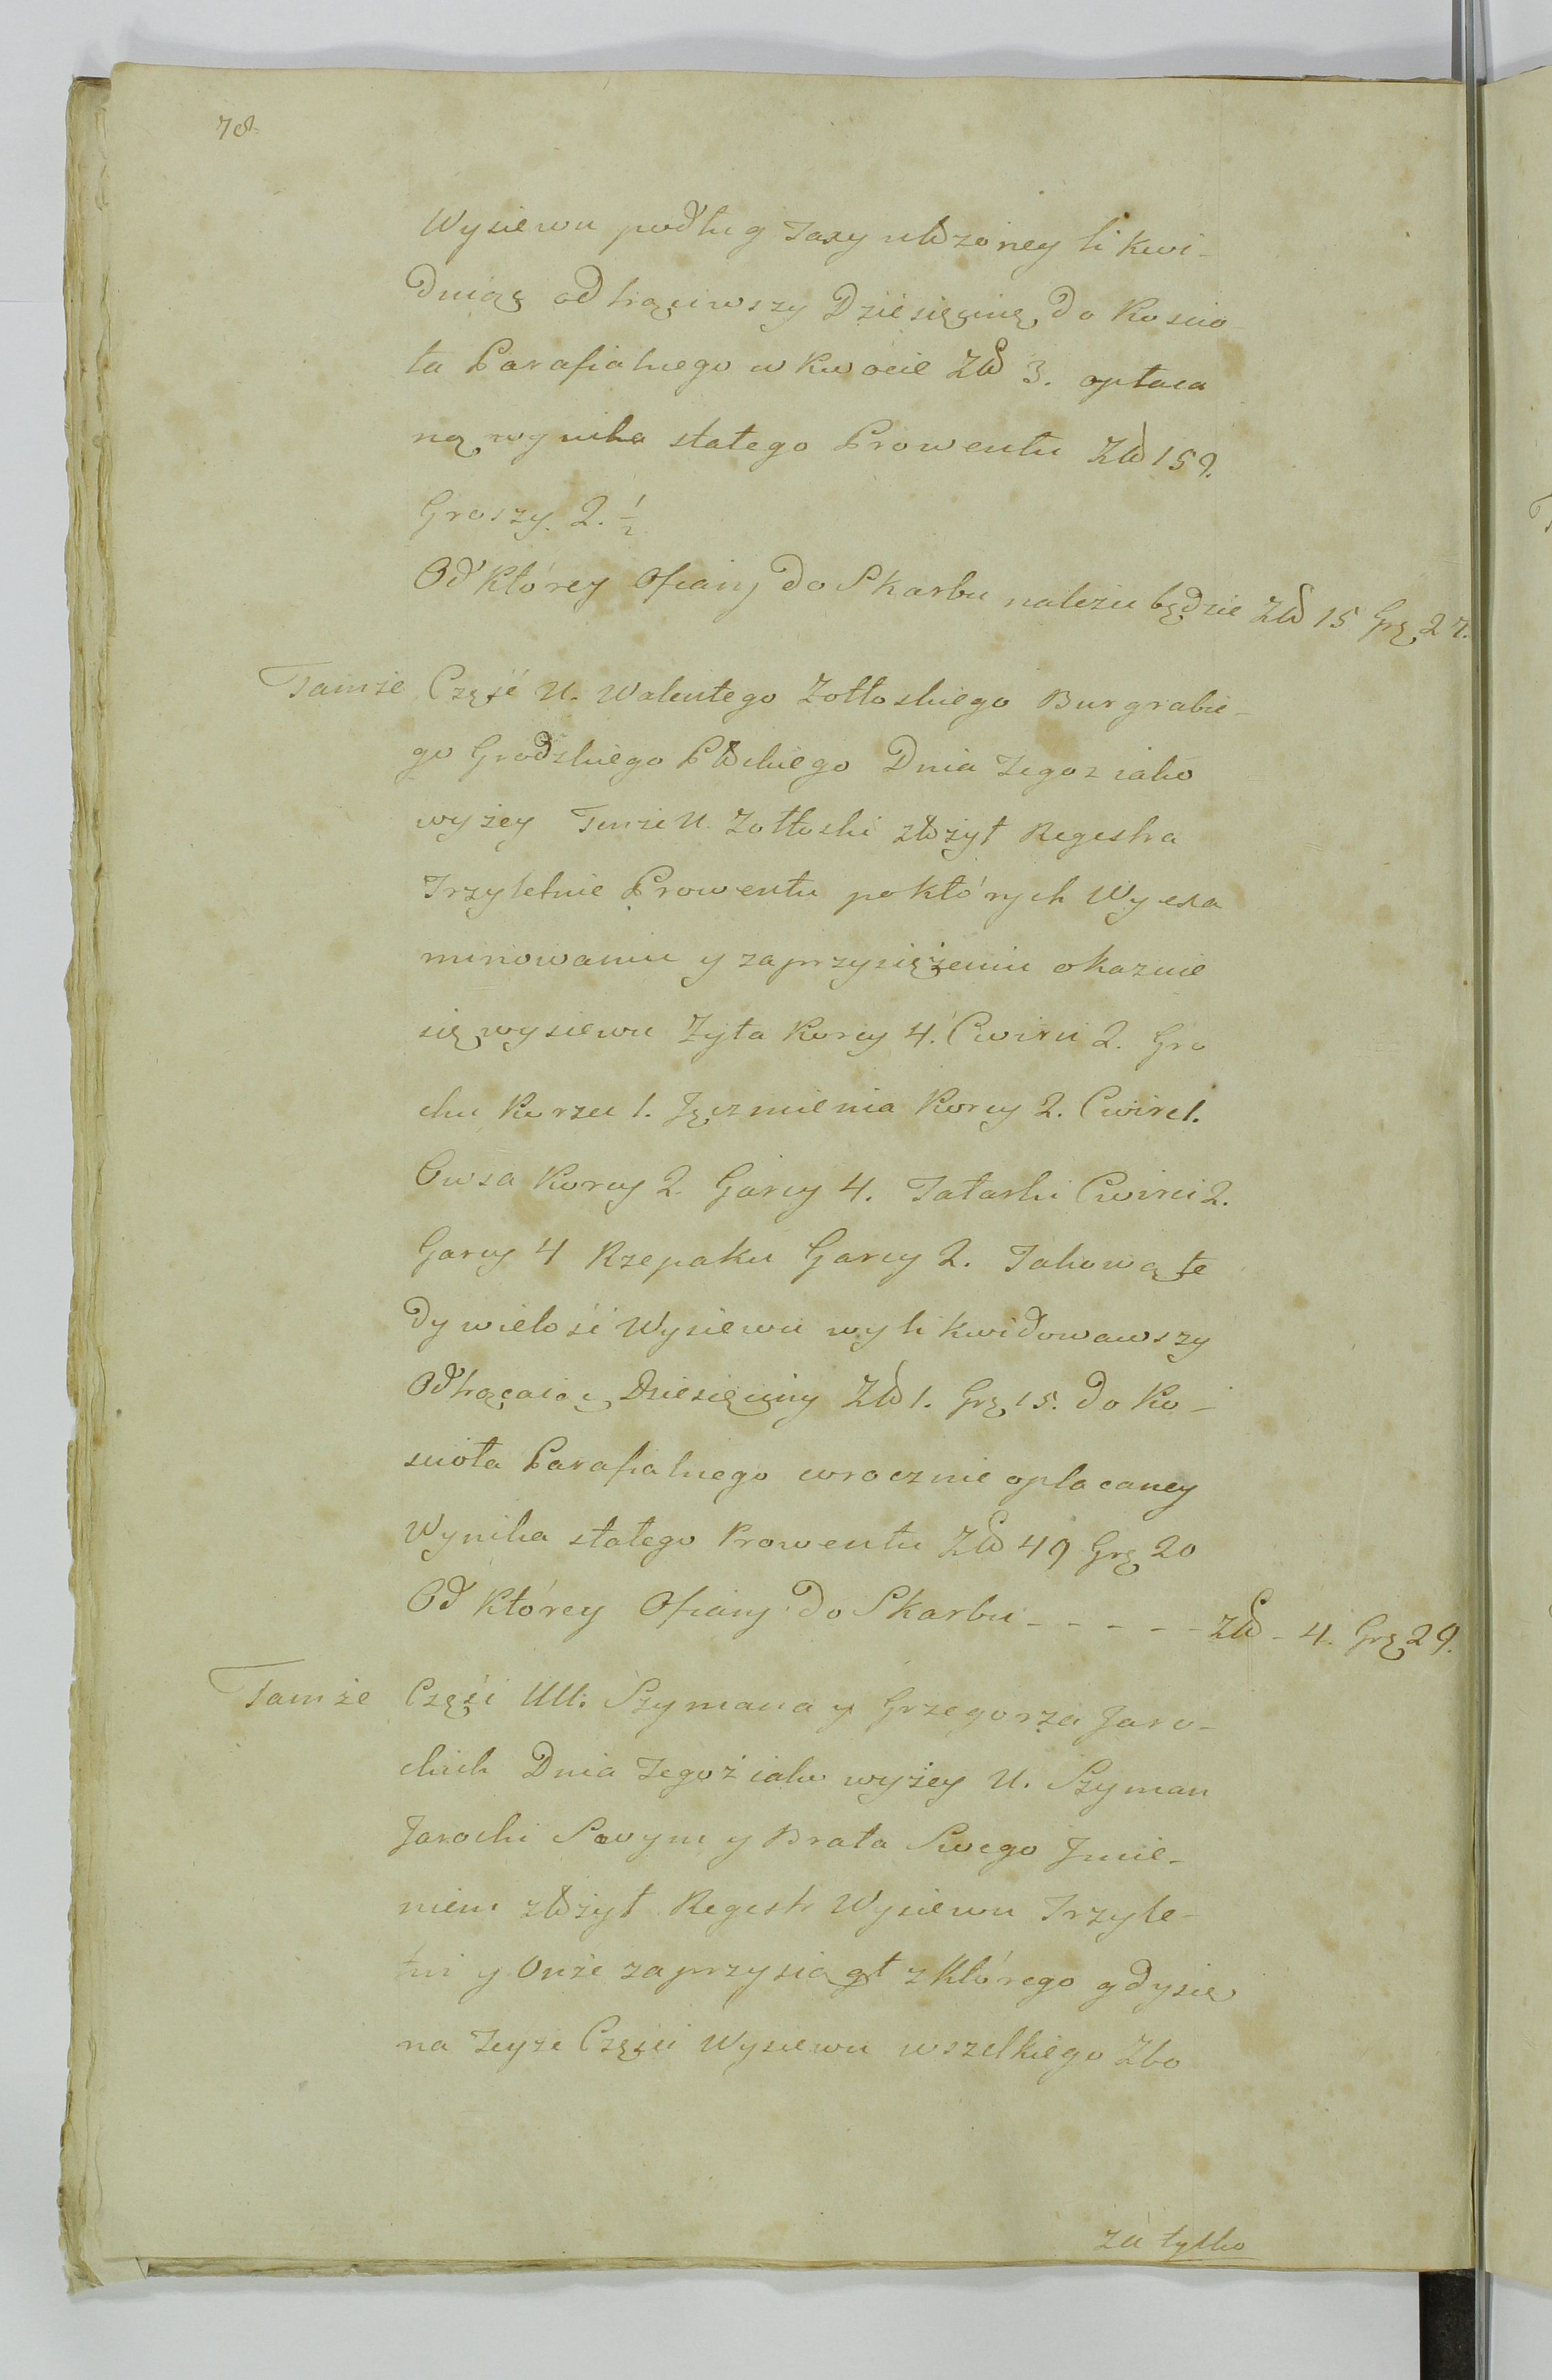 78.
Wysiewu podług Taxy ułożoney likwi-
duiąc odtrąciwszy Dziesięcinę do Koscio
ła Parafialnego w kwocie Zło 3. opłaca
ną wynika stałego Prowentu Zło 159.
Groszy 2. 1/2
Od którey Ofiary do Skarbu należić będzie Zło 15 Grę 27.
Tamże Część U. Walentego Zołtoskiego Burgrabie-
go Grodzkiego Płockiego Dnia Tegoz iako
wyżey Tenże U. Zołtoski złożył Regestra
Trzyletnie Prowentu po których Wyexa
minowaniu y zaprzysiężeniu okazuie
się wysiewu Żyta Korcy 4. Cwierci 2. Gro
chu Korzec 1. Jęczmienia Korcy 2. Cwierć 1.
Owsa Korcy 2 Garcy 4. Tatarki Cwierci 2.
Garcy 4 Rzepaku Garcy 2. Takową te
dy wielość Wysiewu wylikwidowawszy
Odtrącaiąc Dziesięciny Zło 1. Grę 15. do Ko-
scioła Parafialnego wrocznie opłacaney
Wynika stałego Prowentu Zło 49 Grę 20
Od którey Ofiary do Skarbu - - - - - Zło - 4. Grę 29.
Tamże Części UU. Szymana y Grzegorza Jaro-
ckich Dnia Tegoż iako wyżey U. Szyman
Jarocki Swym y Brata Swego Jmie-
niem złożył Regestr Wysiewu Trzyle-
tni y Onże zaprzysiągł z którego gdy się
na Teyże Części Wysiewu wszelkiego Zbo
za tylko